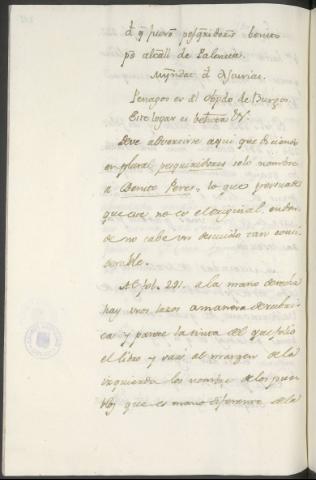 d q fuero pesqridores benito
po alcall de Palencia.
Penagos es del obpdo de Burgos.
Este lugar es
Deve advertirse aqui que diciendo
en plural pesquiridores solo nombra
a Benito Perez, lo que persuade
que este no es el original, en don
de no cabe un descuido tan consi
derable.
Al fol. 221. a la mano derecha
hay unos rasgos a manera de rubri
ca y parece la tinta del que folió
el libro y puso al margen de la
izquierda los nombres de los pue
blos que es mano diferente de la